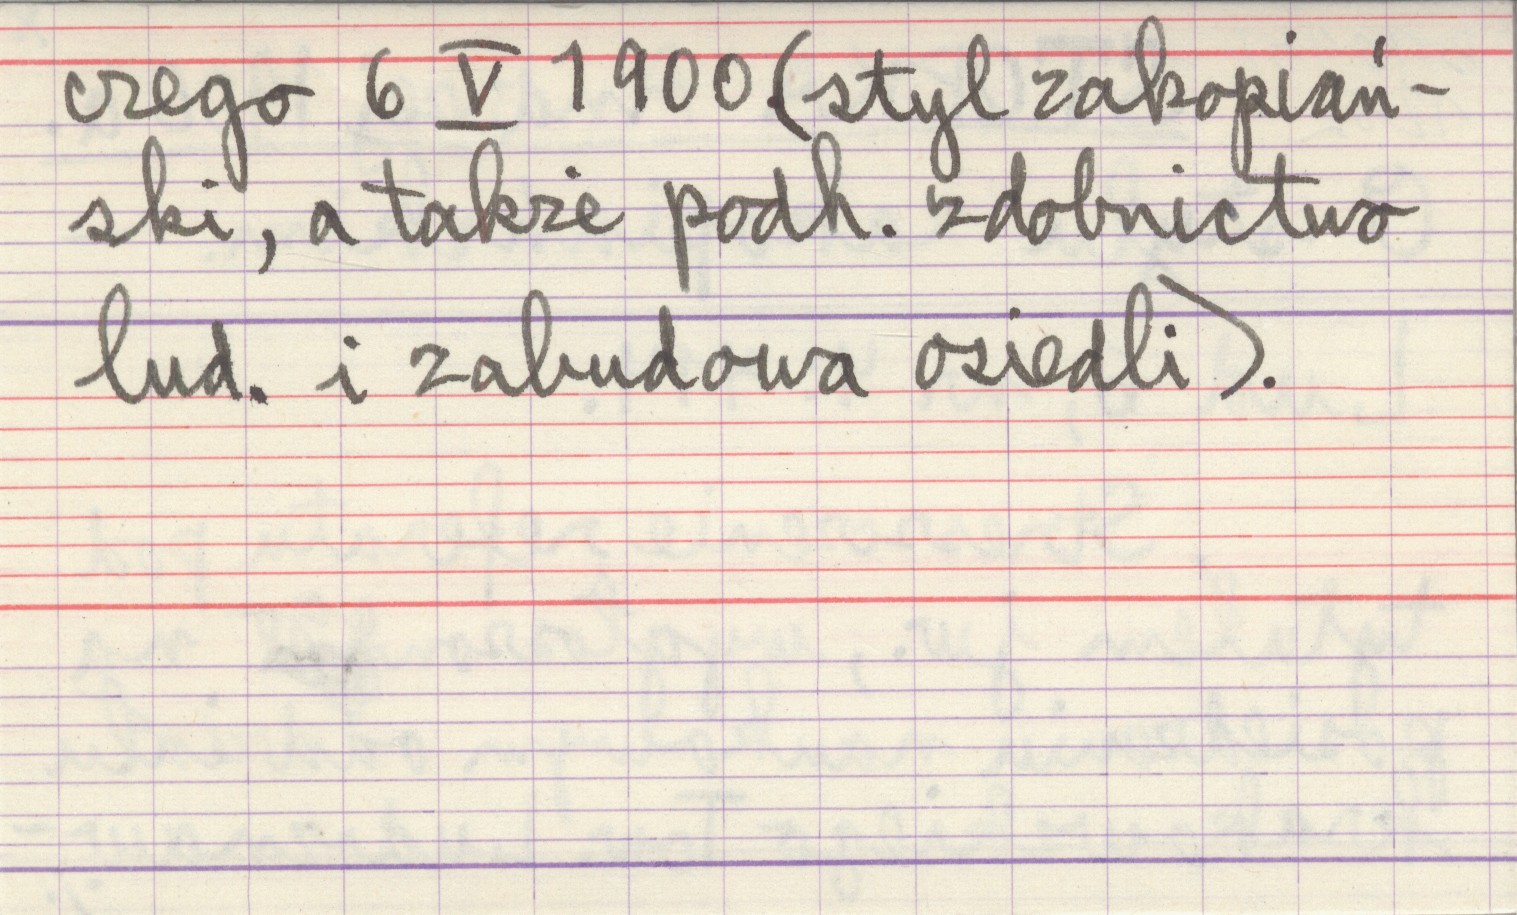 czego 6 V 1900 (styl zakopiań-
ski, a także podh. zdobnictwo
lud. i zabudowa osiedli).